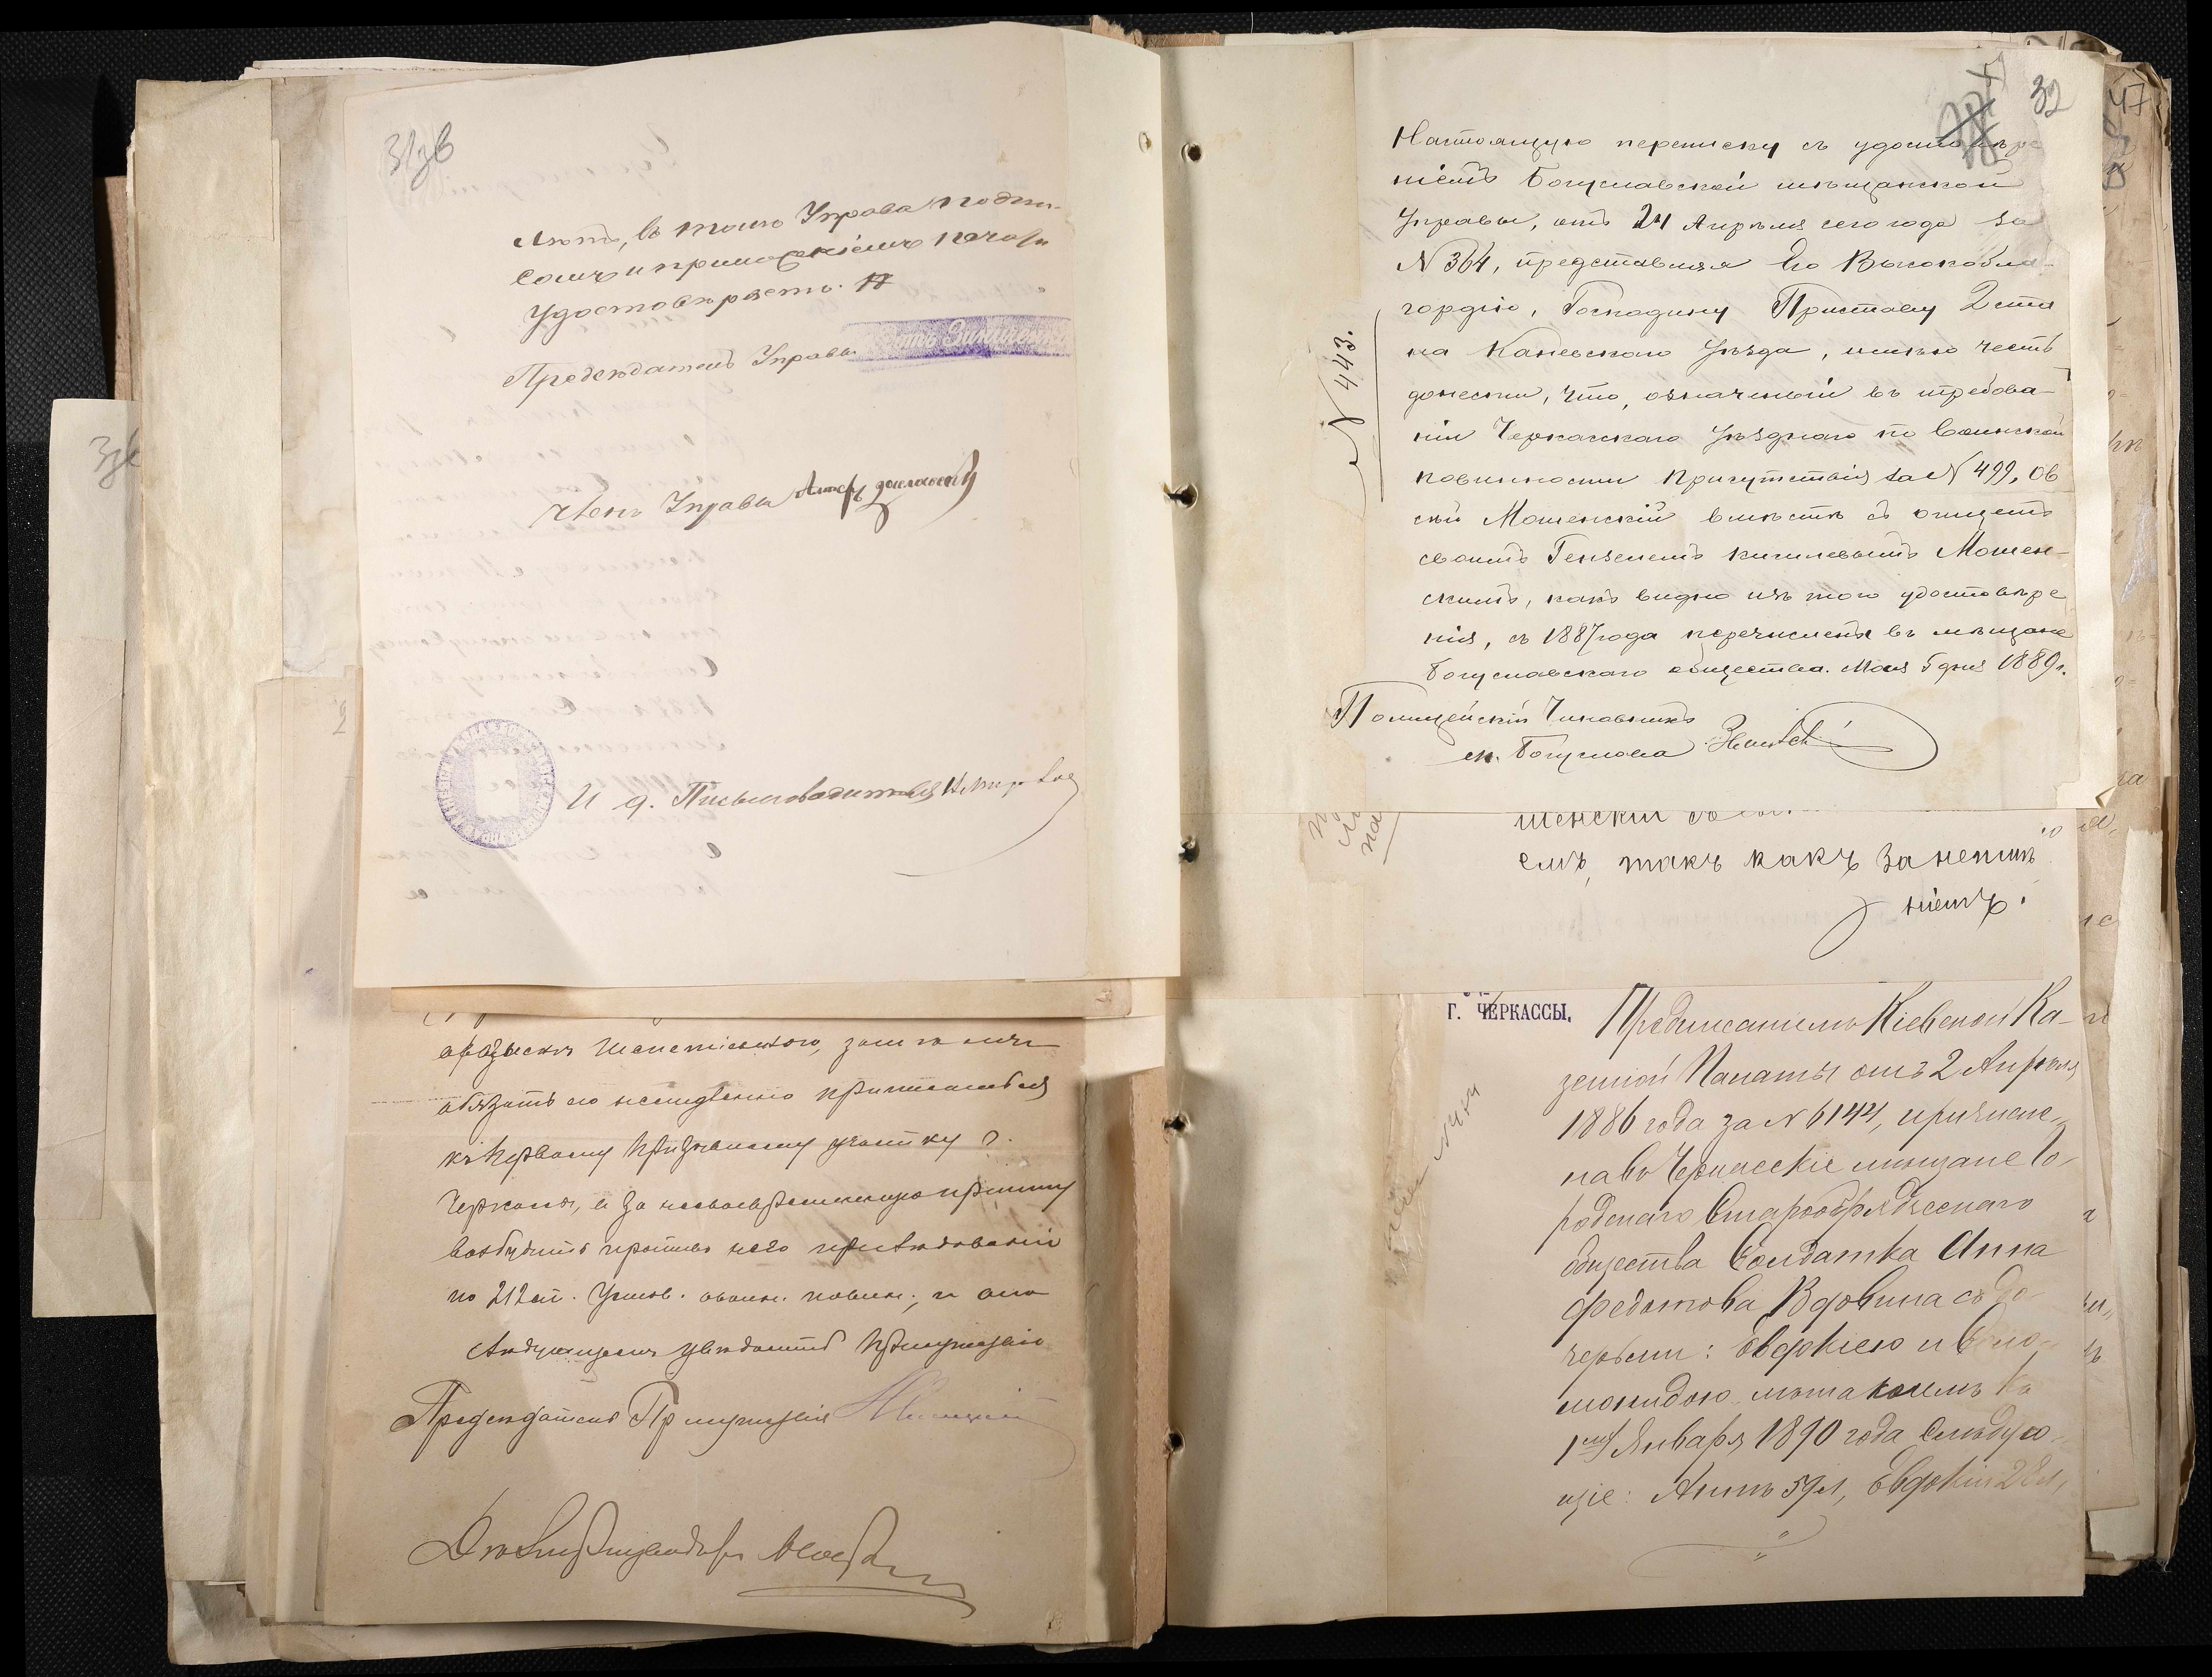 31зв
лютъ, въ томъ Управа подпи-
сомъ и приложеніемъ печати
удостовѣряетъ.
Предсѣдатель Управы
Членъ Управы
И д. Письмоводителя
обязать его немедленно приписаться
къ первому призывному участку г.
Черкасы, а за несвоевременную приписку
возбудить противъ него преслѣдованіе
по 212 ст. Устав. о воин. повин., и о по-
слѣдующемъ увѣдомить Присутствіе
Предсѣдатель Присутствія
Дѣлопроизводитель
32
47
Настоящую переписку съ удостовѣре
ніемъ Богуславской мѣщанской
Управы, отъ 24 Апрѣля сего года за
N 364, представляя Его Высокобла-
городію, Господину Приставу 2 ста
на Каневскаго уѣзда, имѣю честь
донести, что, означенный въ требова-
ніи Черкасскаго уѣзднаго по воинской
повинности Присутствія за N 499, Ов
сѣй Мошенскій вмѣстѣ съ отцемъ
своимъ Гензелемъ Мошен-
скимъ, какъ видно изъ того удостовѣре
нія, съ 1887 года перечислены въ мѣщане
Богуславскаго общества. Мая 5 дня 1889 г.
Полицейскій Чиновникъ
м. Богуслава
N 443.
шенскій
емъ, такъ какъ за
ніемъ.
Г. ЧЕРКАССЫ.
Предписаніемъ Кіевской Ка-
зенной Палаты отъ 2 Апрѣля
1886 года за N 6144, причисле-
на въ Черкасскіе мѣщане Го-
родскаго Старообрядческаго
общества Солдатка Анна
Федотова Вдовина съ до-
черьми: Евдокіею и Соло-
монидою лѣта коимъ ко
1му Января 1890 года слѣдую-
щіе: Аннѣ 59 л, Евдокіи 28 л,